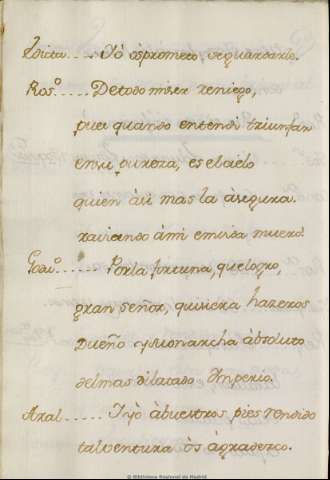 Edicta.... Yo os prometo, reguardarlo.
Ros.º..... De todo mi ser reniego,
pues quando entendi triunfar
en su pureza, es el cielo
quien asi mas la asegura.
raviando à mi embidia muero!
Gosu.º...... Por la fortuna, que logro,
gran señor, quisiera hazeros
Dueño y Monarcha àbsoluto
del mas dilatado Ymperio.
Axal..... Iyò àbuestros pies rendido
tal ventura òs àgradezco.
© Biblioteca Nacional de Madrid